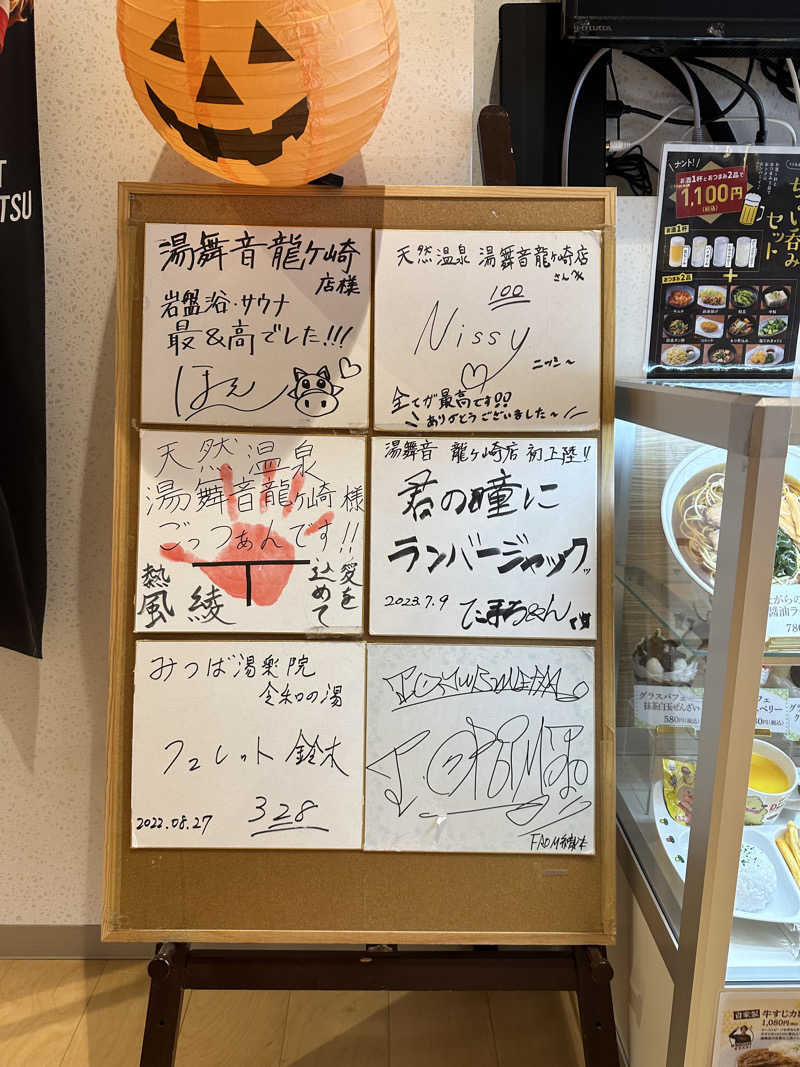 湯舞音龍ケ崎
店様
岩盤浴・サウナ
最&高でした!!!
天然温泉 湯舞音龍ヶ崎店
さんへ
100
Nissy
ニッシ〜
全てが最高です!!
ありがとうございました〜
天然温泉
湯舞音龍ヶ崎様
ごっつぁんです!!
熱風
綾
愛を
込めて
湯舞音 龍ヶ崎店 初上陸!!
君の瞳に
ランバージャックッ
2023.7.9
みつば湯楽院
令和の湯
フェレット鈴木
2022.08.27
328
ナント!
お酒1杯とおつまみ2品で
1,100円
(税込)
ちょい呑み
セット
お酒1杯
おつまみ2品
グラスパフェ
抹茶白玉ぜんざい
580円(税込)
醤油ラ
780
牛すじカ
1,080円
TSU